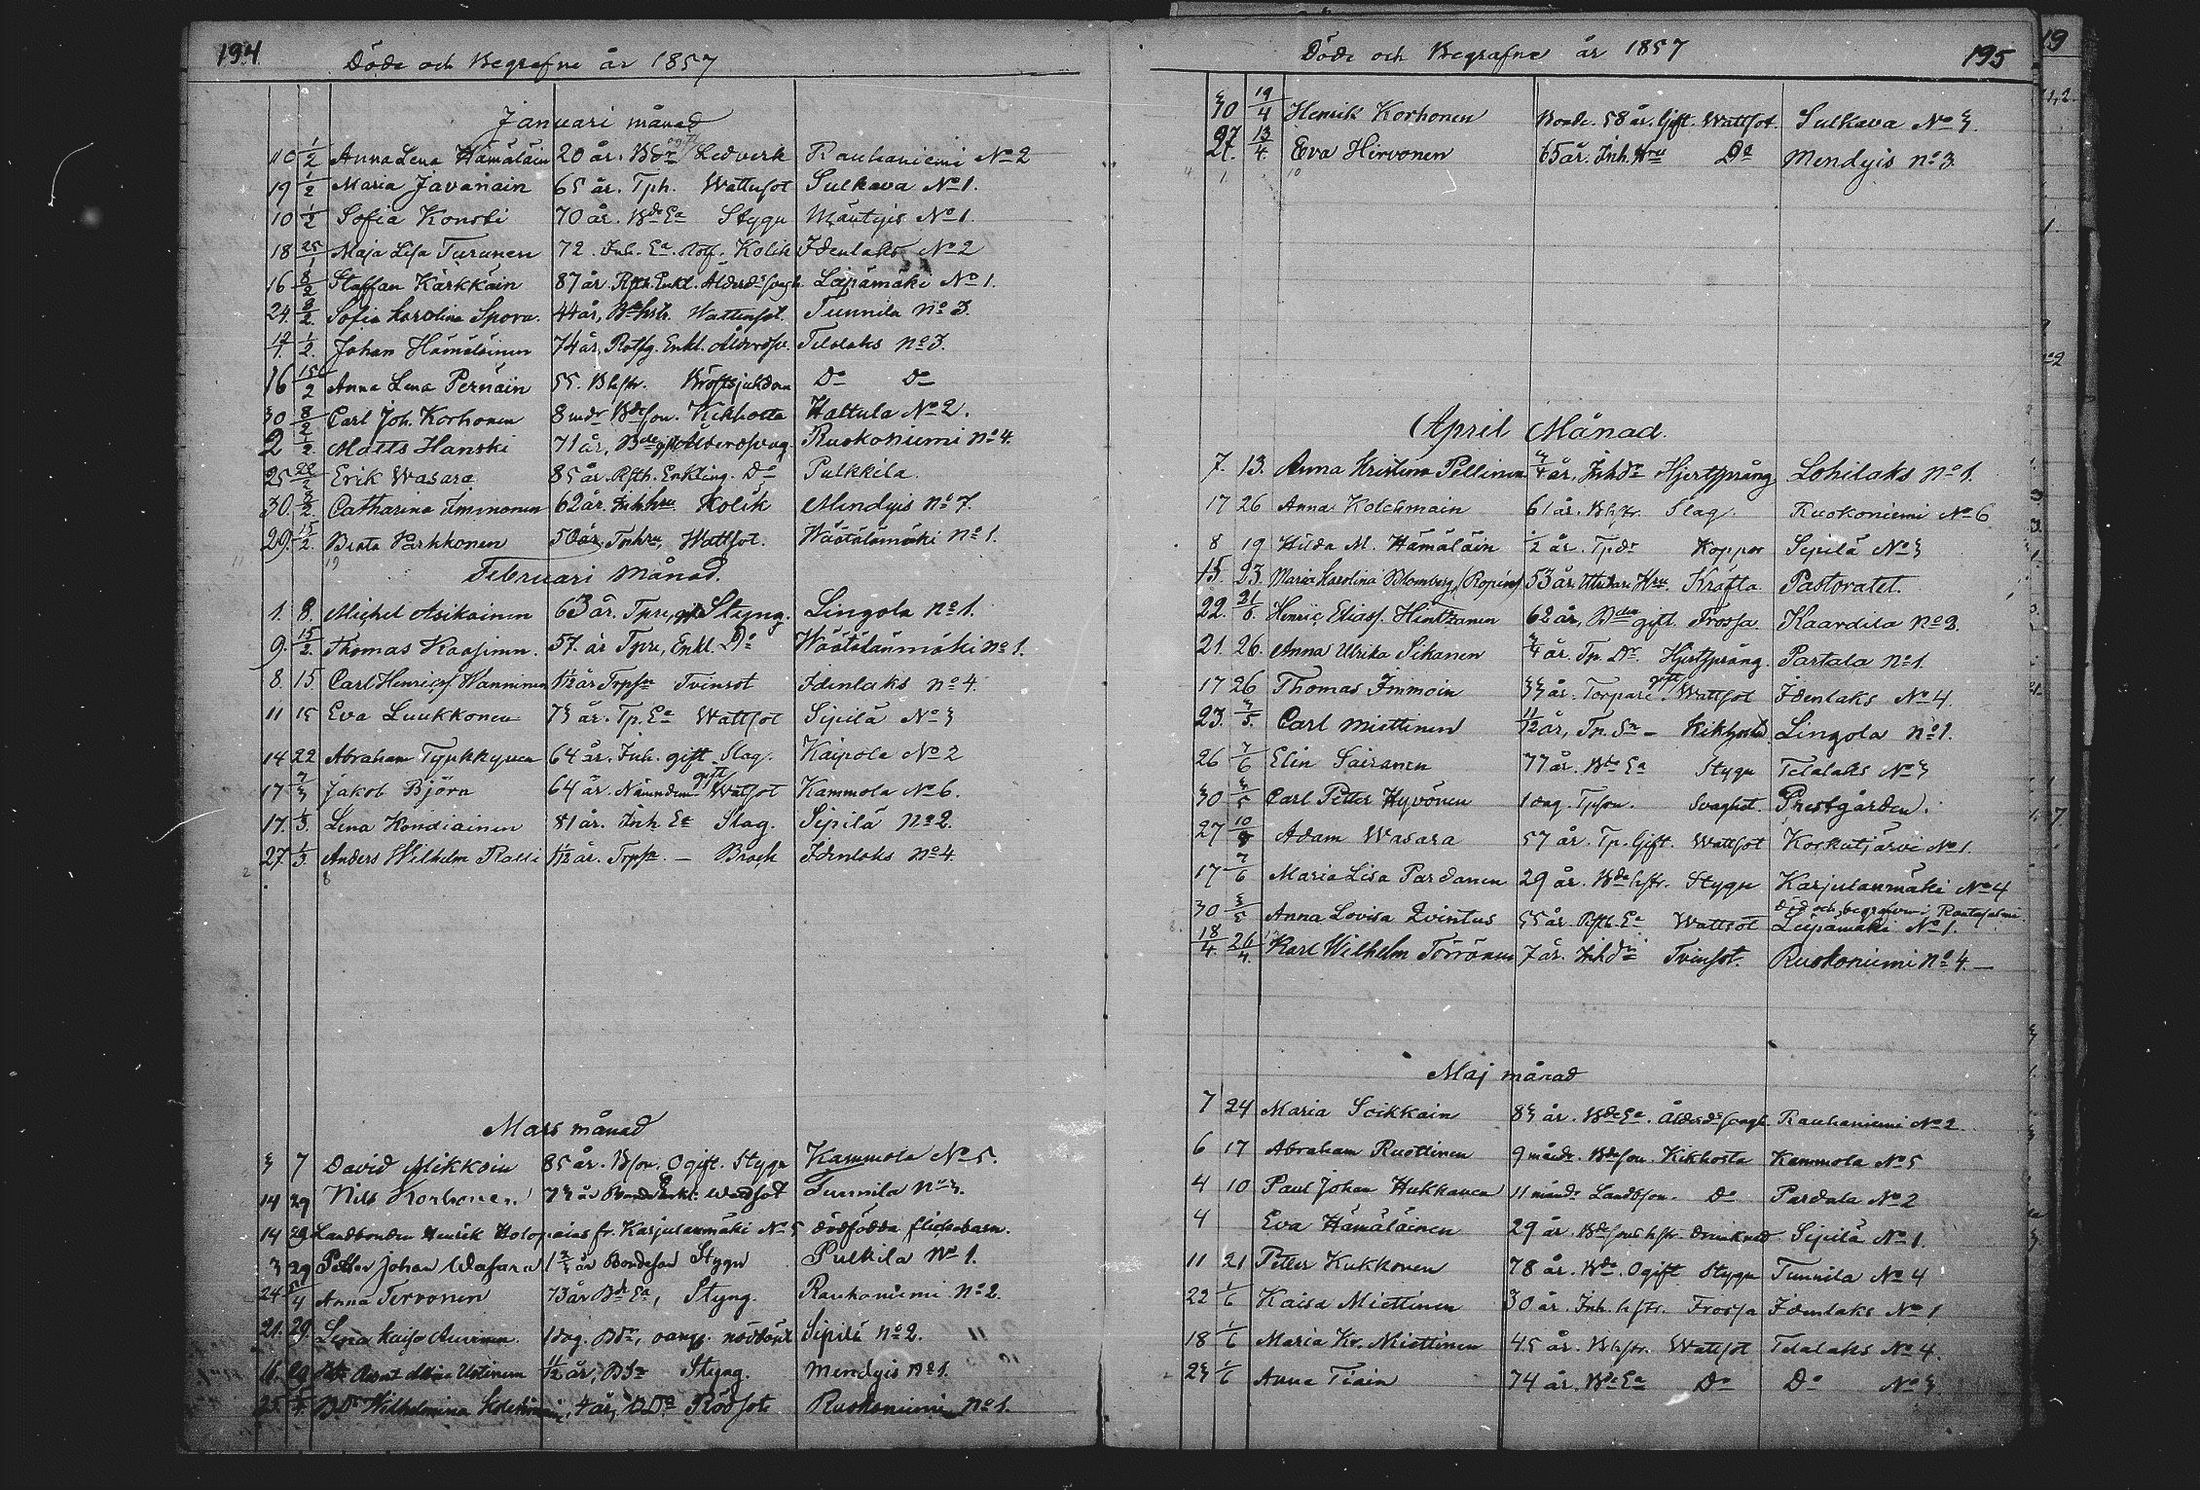 194
Döde och Begrafne år 1857
Januari månad
10 1/2 Anna Lena Hämäläin 20 år. Ledverk Rauhaniemi No 2
19 1/2 Maria Javanain 65 år. Tph. Wattusot Sulkava No 1.
10 1/2 Sofia Konsti 70 år. Bde Ea Stygn Mäntyis No 1.
18 25/1 Maja Lisa Turunen 72. Inh. Ea. Kolik Idenlaks No 2
16 8/2 Staffan Kärkkäin 87 år. Enkl. Ålderdsvagh Lepämäki No 1.
24. 8/2. Sofia Karolina Spora. 44 år, Wattusot. Tunnila No 3.
1/2. Johan Hämäläinen 74 år, Enkl. Telalaks No 3.
16 15/2 Anna Lena Pernäin 55. Bhstr. Kräftsjukdom Do Do
30 8/2 Carl Joh. Korhonen 8 mdr Bdeson. Kikhosta Haltula No 2.
2 Matts Hanski 71 år, Ruokoniemi No 4.
25 22/2 Erik Wasara 85 år. Enkling. Do Pulkkila.
30. 8/2. Catharina Immonen 62 år. Inhhru Kolik Mendyis No 7.
29. 15/2. Beata Parkkonen 50 år, Inhru, Wattsot. Wäätälämäki No 1.
Februari Månad.
1. 8. Michel Asikainen 63 år. Tpre, gift Styng. Lingola No 1.
9. 15/2. Thomas Kaasinen. 57. år Tpre, Enkl. Do Wäätälänmäki No 1.
8. 15. Carl Henricss Hanninen 1/12 år Trpsn Tvinsot Idenlaks No 4.
11 15 Eva Luukkonen 73 år. Tp. Ea Wattsot Sipilä No 3
14 22 Abraham Tynkkynen 64 år. Inh. gift Slag. Kaipola No 2
17 7/3 Jakob Björn 64 år. Nämndem gift Watsot Kammola No 6.
17. 1/3. Lena Kondiainen 81 år. Inh. Ea Slag. Sipilä No 2.
27. 1/3. Anders Wilhelm Ralli 1/12 år. Trpsn. – Brach Idenlaks No 4.
Mars månad
3 7 David Mikkoin 85 år. Bson. Ogift. Stygn Kammola No 5.
14 29 Nils Korhonen 73 år Bonde Enkl. Wattsot Tunnila No 3.
14 29 Landbonden Henrik Holopainens fr. Karjulanmäki No 5 dödfödda flickobarn.
3 29 Petter Johan Wasara 1 3/4 år Bondeson Stygn Pulkila No 1.
24 5/4 Anna Tervonen 73 år Bde Ea, Styng. Rauhaniemi No 2.
21. 29. Lena Kaisa Auvinen. 1 dag. Bdr, nöddöpt Sipilä No 2.
16. 29 Ustinum 11/12 år, BSn Styng. Mendyis No 1.
25. Bdr Wilhelmina 4 år, BDr Rödsot Ruokoniemi No 1.
Döde och Begrafne år 1857
195
30 19/4 Henrik Korhonen Bonde. 58 år. Gift. Wattsot. Sulkava No 3.
27. 13/4. Eva Hirvonen 65 år. Inh. Hru Do Mendyis No 3.
April Månad.
7. 13. Anna Kristina Pellinen 3/4 år, Inhdr Hjertsprång Lohilaks No 1.
17 26 Anna Kolehmain 61 år. Bhstr. Slag. Ruokoniemi No 6
8 19 Hilda M. Hämäläin 1/2 år. Tpdr Koppor Sipilä No 3
15. 23. Maria Karolina Blomberg, 53 år. Hru. Kräfta. Pastoratet.
22. 21/6. Henric Eliass. Hintzanen 62 år, Bden gift. Frossa. Kaartila No 3.
21. 26. Anna Ulrika Sikanen 3/4 år. Tp. Dr. Hjertsprång. Partala No 1.
17 26 Thomas Immoin 33 år. Torpare gift Wattsot Idenlaks No 4.
23. 3/5. Carl Miettinen 11/12 år, Tp. Sn – Kikhosta. Lingola No 1.
26 7/6 Elin Sairanen 77 år. Bde Ea Stygn Telalaks No 3
30 3/5 Carl Petter Hyvönen 1 dag. Tpson. Svaghet. Prestgården.
27 10/8 Adam Wasara 57 år. Tp. Gift. Wattsot Koskutjärvi No 1.
17 7/6 Maria Lisa Pardanen 29 år. Bdehstr. Stygn Karjulanmäki No 4
död och begraven i Rantasalmi.
30 3/5 Anna Lovisa Qvintus 55 år. Ea Wattsot Lepämäki No 1.
18/4. 26/4. Karl Wilhelm Törrönen 7 år. Inhdn Tvinsot. Ruokoniemi No 4.
Maj månad
7 24 Maria Soikkain 83 år. Bde Ea. Ålderdsvagh Rauhaniemi No 2
6 17 Abraham Ruottinen 9 månr. Bdeson. Kikhosta Kammola No 5
4 10 Paul Johan Hukkanen 11 månr Landbson. Do Pardala No 2
4 Eva Hämäläinen 29 år. Bdesons hstr. Drunknad Sipilä No 1.
11 21 Petter Kukkonen 78 år. Bde. Ogift Stygn Tunnila No 4
22 1/6 Kaisa Miettinen 30 år. Inh. hstr. Frossa Idenlaks No 1
18 1/6 Maria Kr. Miettinen 45 år. Bhstr. Wattsot Telalaks No 4.
23 1/6 Anna Tiain 74 år. Bde Ea Do Do No 3.